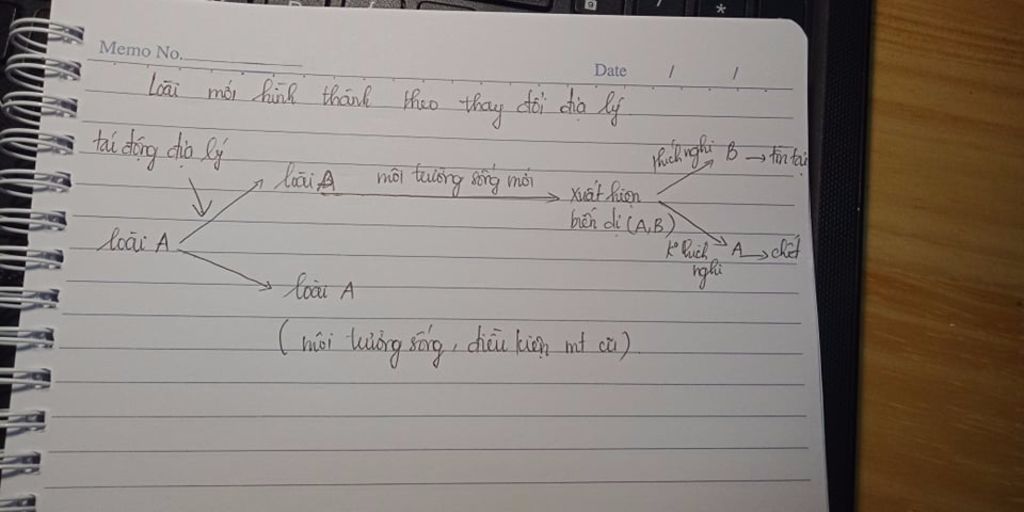 Memo No.
Date / /
Loài mới hình thành theo thay đổi địa lý
tác động địa lý
loài A môi trường sống mới
xuất hiện
biến dị (A,B)
thích nghi B → tồn tại
loài A
k° thích nghi A → chết
loài A
(môi trường sống, điều kiện mt cũ)